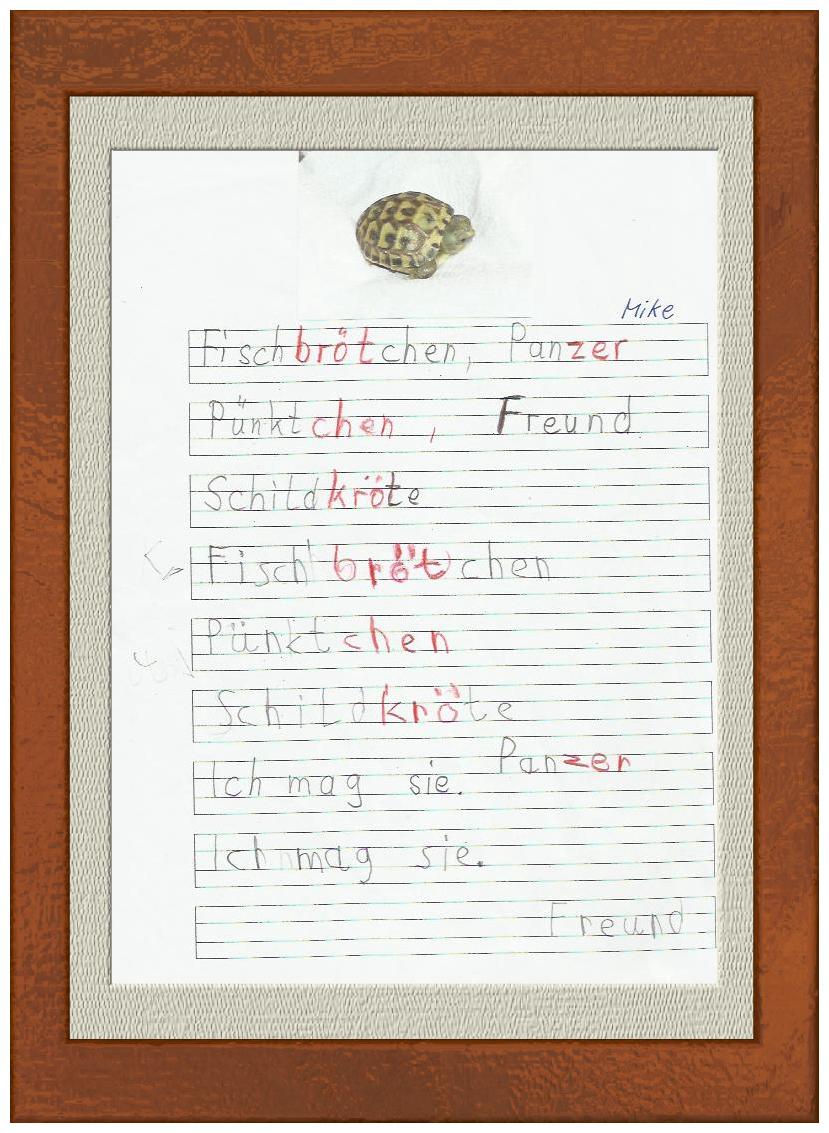 Mike
Fischbrötchen, Panzer
Pünktchen, Freund
Schildkröte
Fischbrötchen
Pünktchen
Schildkröte
Panzer
Ich mag sie.
Ich mag sie.
Freund